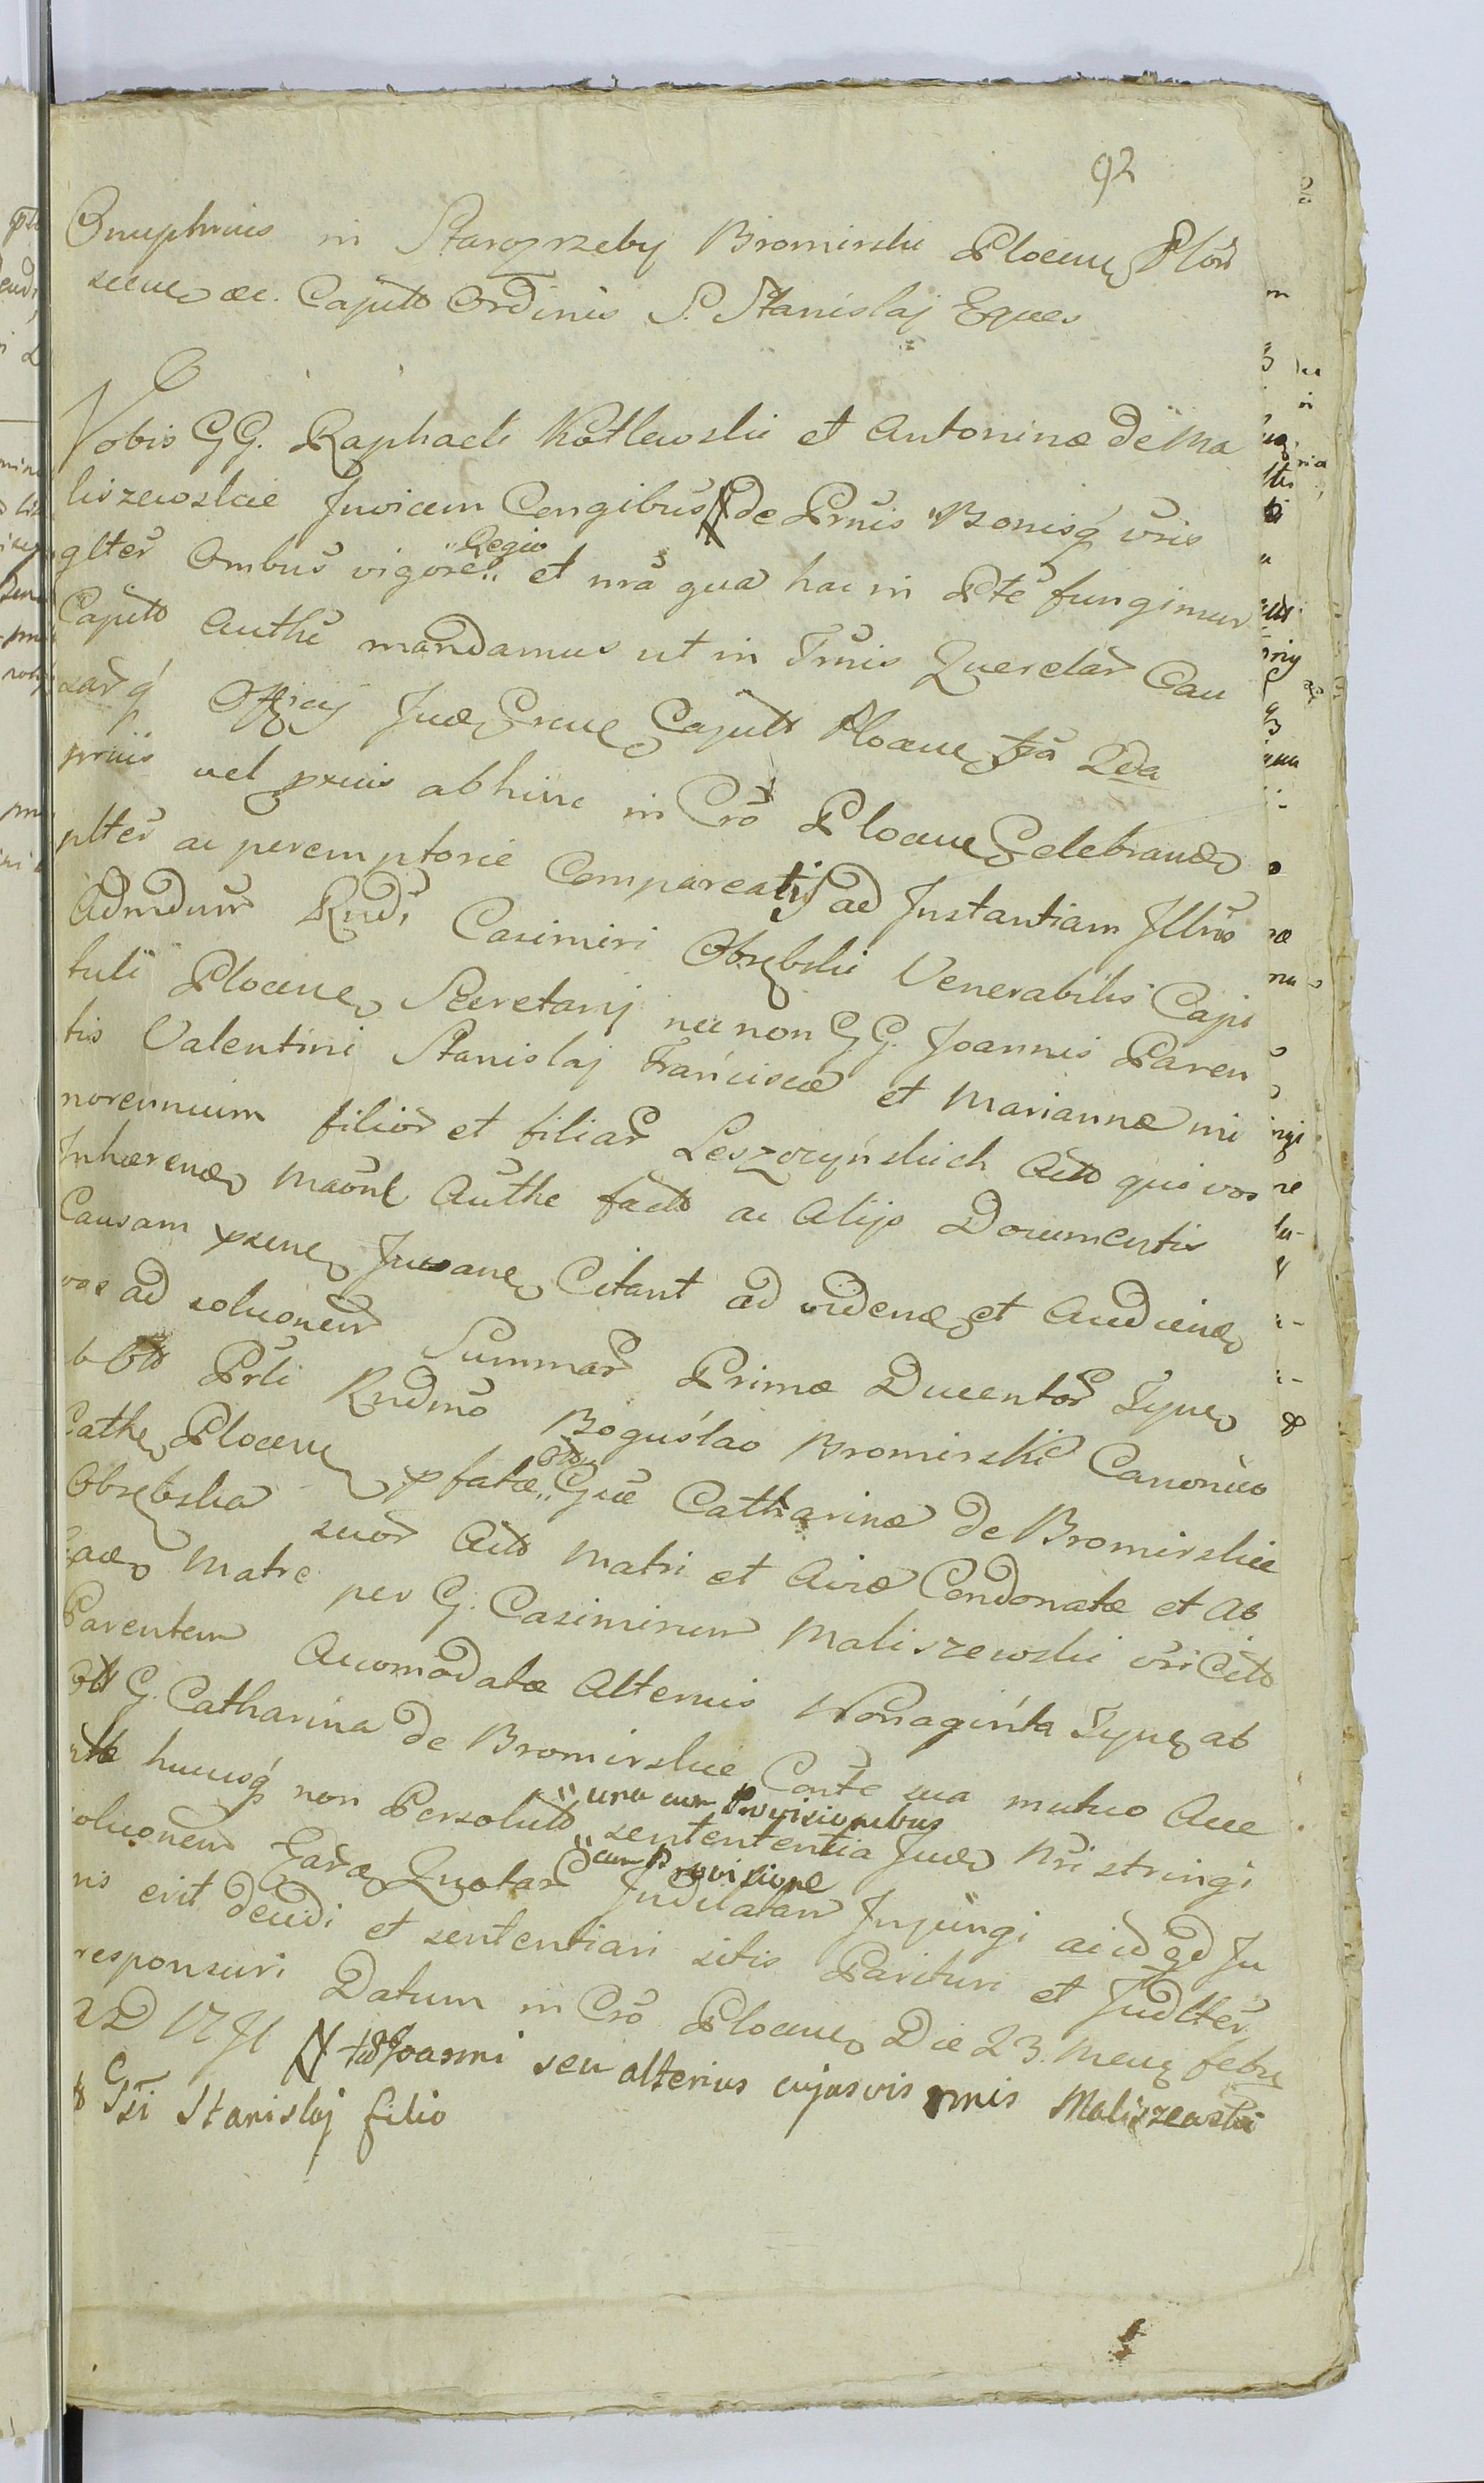 92
Onuphrius in Starozrzeby Bromirski Plocen Plon
scen ac. Capitt Ordinis S. Stanislaj Eques
Vobis GG. Raphaeli Kotlewski et Antoninæ de Ma
liszewskie Invicem Congibus N de Prnis Bonisq vris
glter Ombus vigore Regia et nra qua hac in Pte fungimur
Captt Authe mandamus ut in Trnis Querelar Cau
sarq Officij Jud Crene Capitt Plocen fra 2da
prius vel prius abhinc in Cro Plocen Celebrand
plter ac peremptorie Compareatis ad Instantiam Illris
Admdum Rndi Casimiri Obrębski Venerabilis Capi
tuli Plocen Secretarij nec non GG. Joannis Paren
tis Valentini Stanislaj Franciscæ et Mariannæ mi
norennium filior et filiar Leszczyńskich Actt qui vos
Inhærend Maonl Authe factt ac Alijs Documentis
Causam psene Juvane Citant ad videnđ et Audiend
vos ad soluonem Summar Primæ Ducentor Tynf
b Ott Prli Rndmo Bogusłao Bromirski Canonico
Cathe Plocen pfatæ Ottæ Gsæ Catharinæ de Bromirskie
Obrębska suor Actt Matri et Aviæ Condonatæ et Ab
Ead Matre per G. Casimirum Maliszewski vri Citt
Parentem Accomodatæ Alterius Nonaginta Tynf ab
Ott G. Catharina de Bromirskie Conte sua mutuo Acce
ptæ hucusq non Persolutt una cum Provisionibus sententia Jud Nri stringi
soluonem Eard Quotar cum Provisione Judicatam Injungi aicd qd Ju
ris erit decidi et sententiari sitis Parituri et Judlter
responsuri Datum in Cro Plocen Die 23. Mens febr
A D 1791 N tt Joanni seu alterius cujusvis nnis Maliszewski
Gsi Stanislaj filio